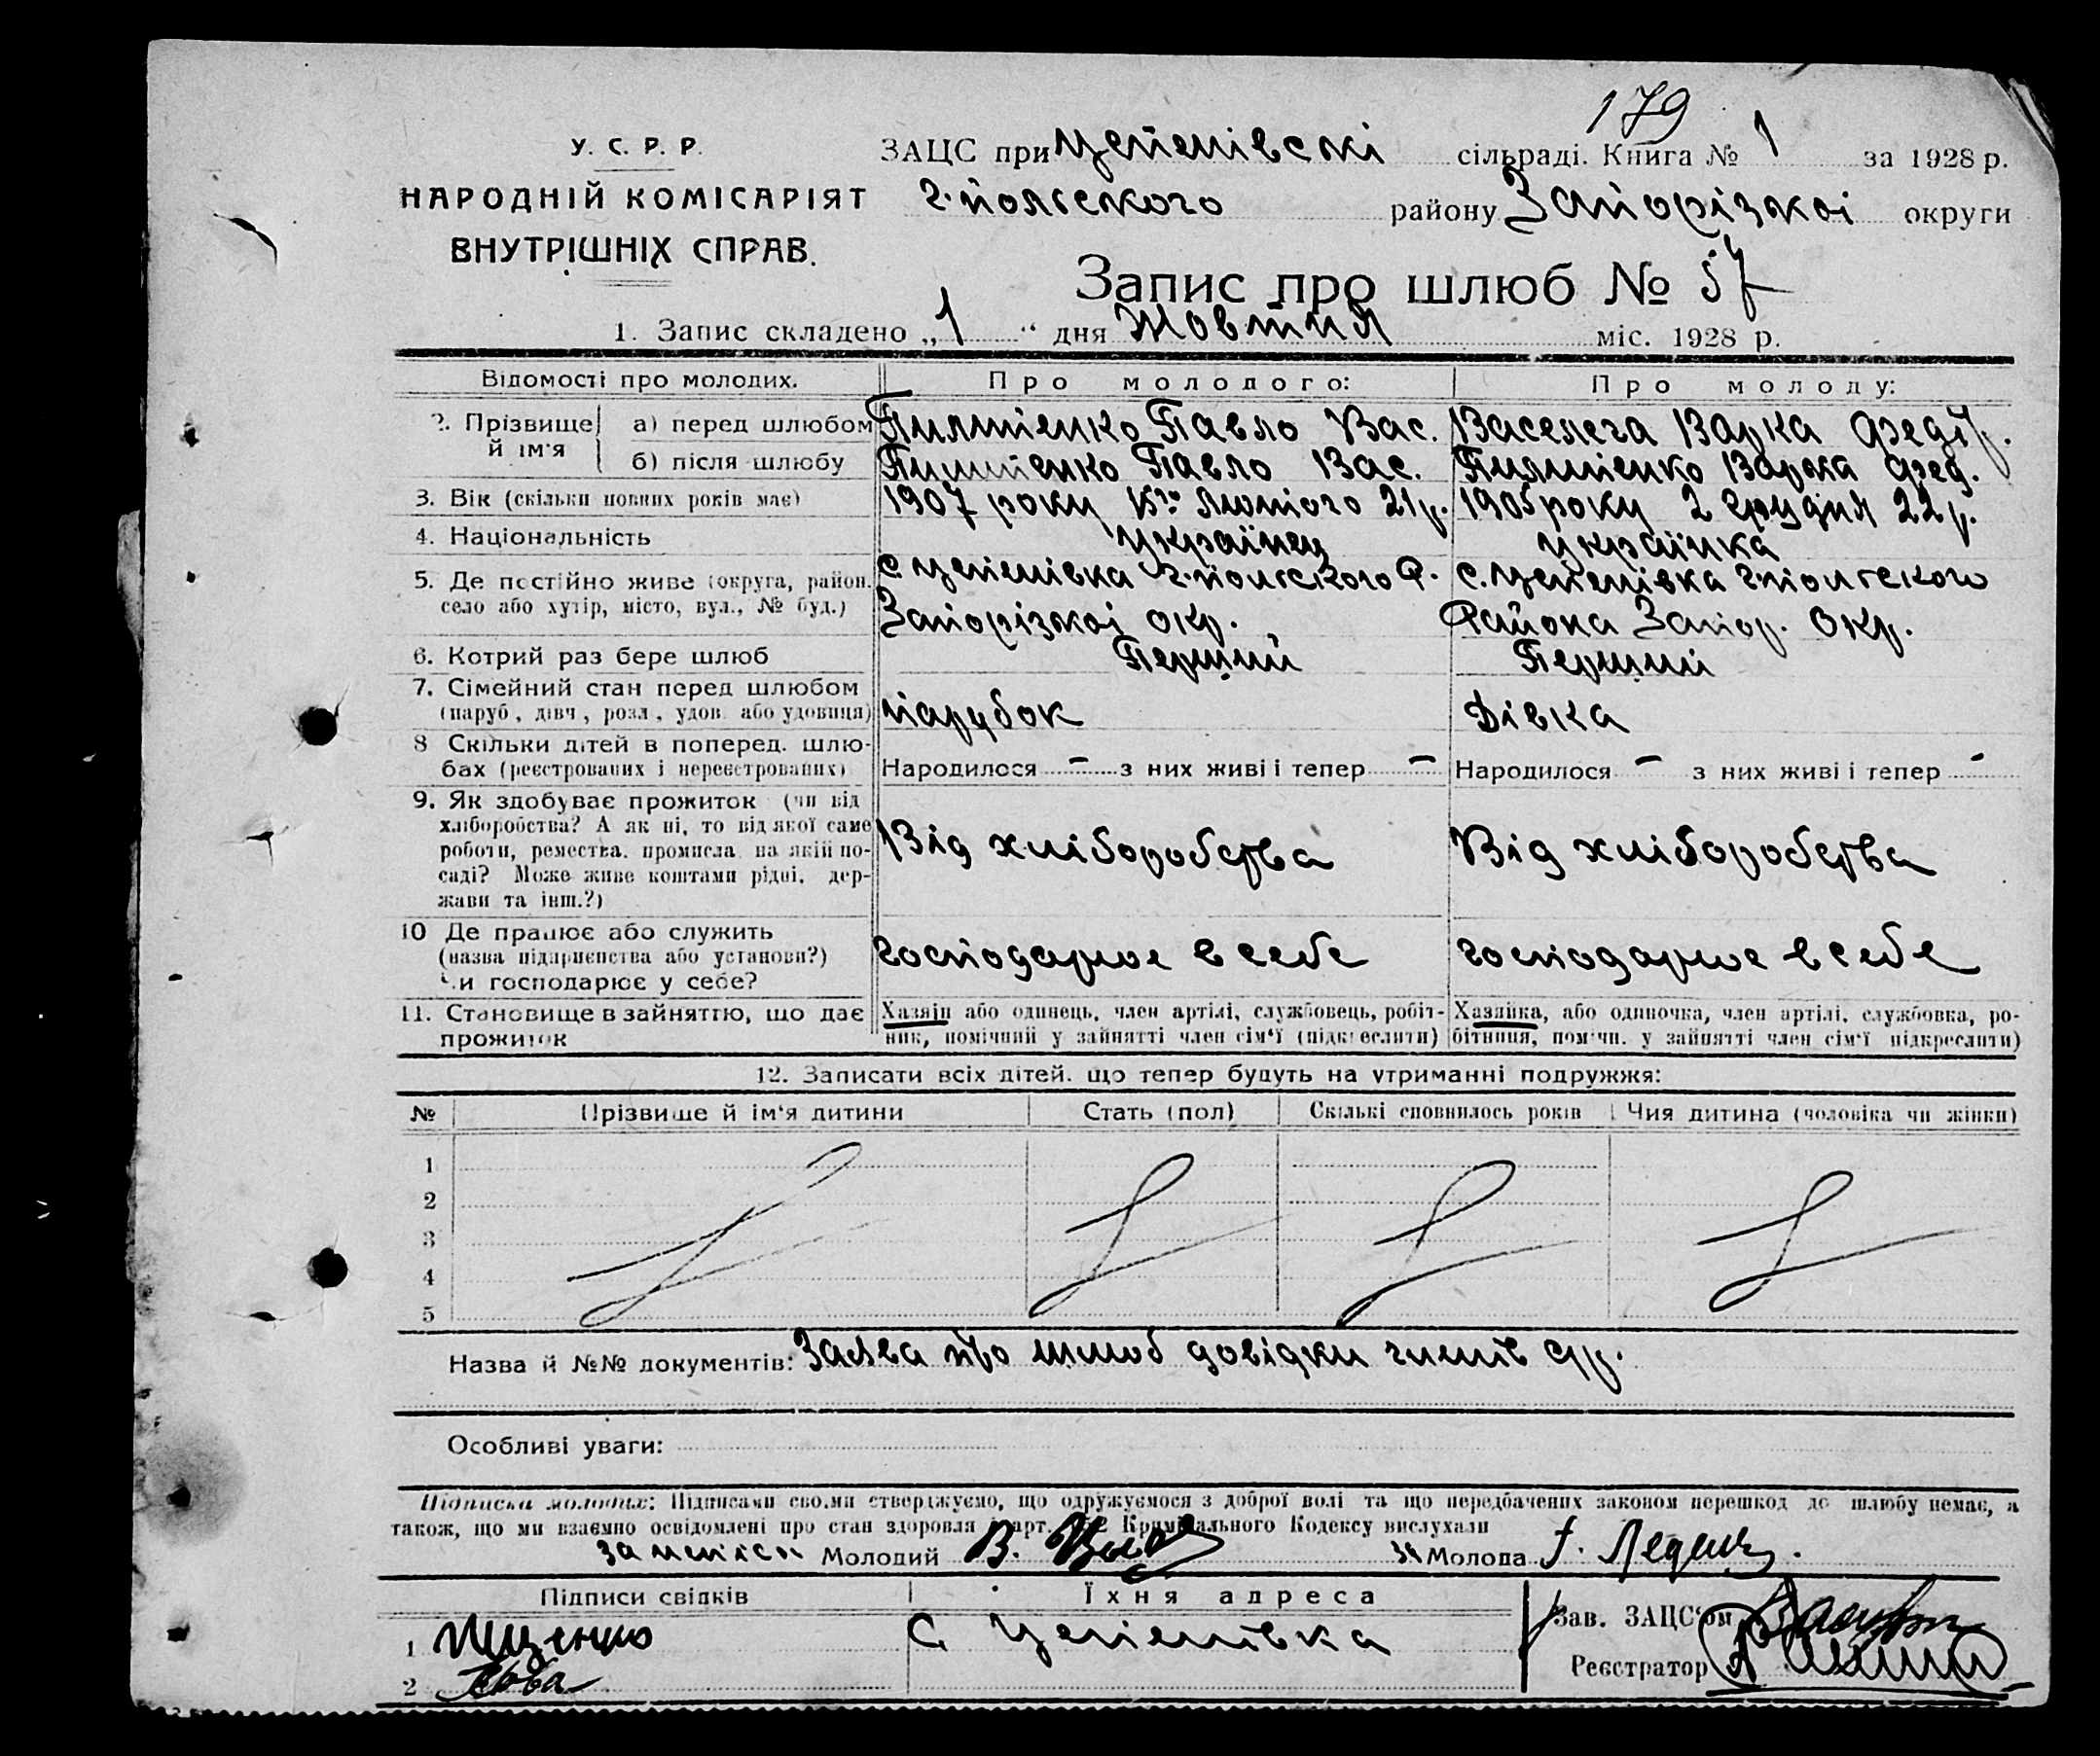 179
У. С. Р. Р.
НАРОДНІЙ КОМІСАРІЯТ
ВНУТРІШНІХ СПРАВ.
ЗАЦС при Цепенівскі сільраді. Книга № 1 за 1928 р.
г.польского району Запорізької округи
Запис про шлюб № 57
1. Запис складено „1“ дня Жовтня міс. 1928 р.
Відомості про молодих. Про молодого: Про молоду:
2. Прізвище й ім'я
а) перед шлюбом Павло Вас. Варка Федір.
б) після шлюбу Павло Вас. Варка Фед.
3. Вік (скільки повних років має) 1907 року Лютого 21 р. 1905 року 2 Грудня 22 р.
4. Національність українец українка
5. Де постійно живе (округа, район. с. Цепенівка г.польского Р. с. Цепенівка г.польського
село або хутір, місто, вул., № буд.) Запорізкої окр. Района Запор. Окр.
6. Котрий раз бере шлюб Перший Перший
7. Сімейний стан перед шлюбом
(паруб, дівч, розл, удов або удовиця) парубок Дівка
8 Скільки дітей в поперед. шлю-
бах (реєстрованих і нереєстрованих) Народилося – з них живі і тепер – Народилося – з них живі і тепер -
9. Як здобуває прожиток (чи від
хліборобства? А як ні, то від якої саме
роботи, ремества. промисла на якій по- Від хліборобства Від хліборобства
саді? Може живе коштами рідні, дер-
жави та інш.?)
10 Де працює або служить
(назва підприєпства або установи?) господарює в себе господарює в себе
Чи господарює у себе?
11. Становище в зайняттю, що дає Хазяїн або одинець, член артілі, службовець, робіт- Хазяйка, або одиночка, член артілі, службовка, ро-
прожиток ник, помічний у зайнятті член сім'ї (підкреслити) бітниця, помічн. у зайнятті член сім'ї підкреслити)
12. Записати всіх дітей, що тепер будуть на утриманні подружжя:
№ Прізвище й ім'я дитини Стать (пол) Скількі сповнилось років Чия дитина (чоловіка чи жінки)
1
2
3
4
5
Назва й №№ документів: Заява про шлюб довідки
Особливі уваги:
Підписка молодих: Підписами своїми стверджуємо, що одружуємося з доброї волі та що передбачених законом перешкод до шлюбу немає, а
також, що ми взаємно освідомлені про стан здоровля і арт. Кримінального Кодексу вислухали
Молодий В. за Молода
Підписи свідків Їхня адреса Зав. ЗАЦС'ом
1 Іщенко С Цепенівка
2 Реєстратор